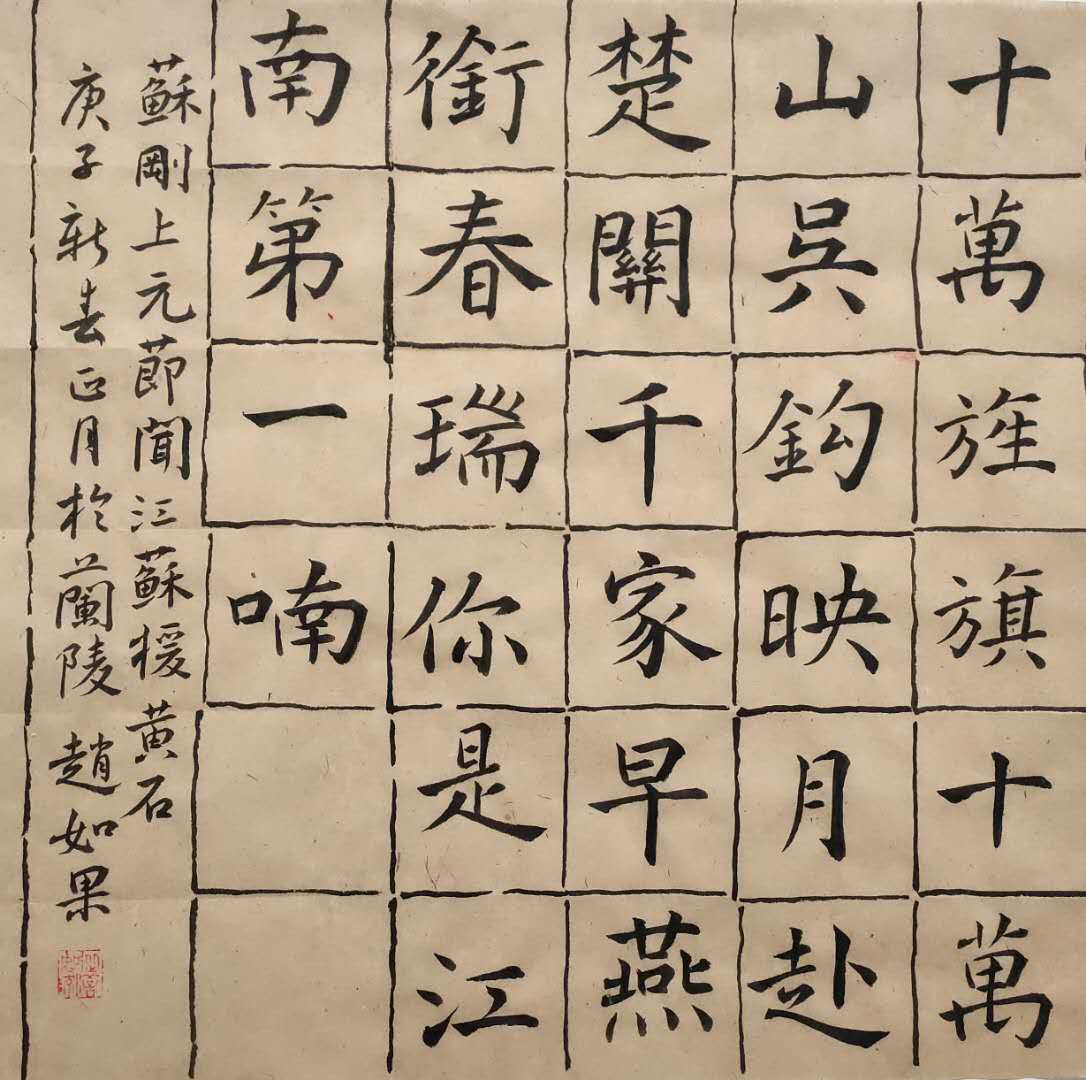 十萬旌旗十萬
山吳鈎映月赴
楚關千家早燕
銜春瑞你是江
南第一喃
蘇剛上元節聞江蘇援黃石
庚子新春正月於蘭陵 趙如果